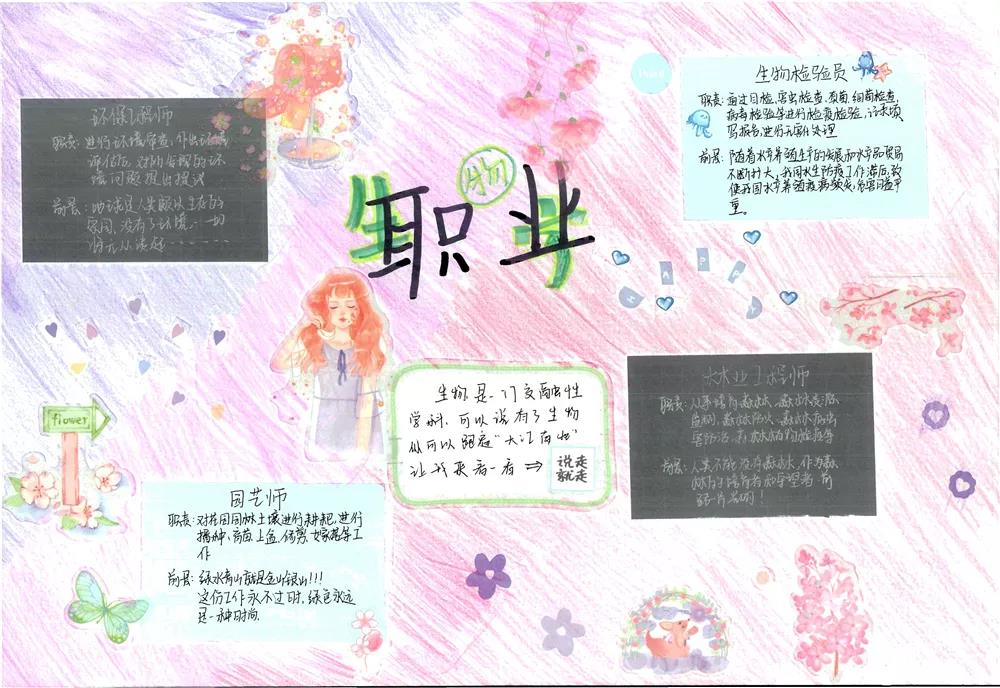 生物
职业
环保工程师
职责:进行环境审查,作出环境
评估后,对所发现的环
境问题提出提议
前景:地球是人类赖以生存的
家园,没有了环境,一切
将无从谈起------
生物检验员
职责:通过目检、害虫检查、真菌、细菌检查,
病毒检验等进行检疫检验,记录填
写报告,进行无害化处理
前景:随着水产养殖生产的发展和水产品贸易
不断扩大,我国水生防疫工作滞后,致
使我国水产养殖疫病频发,危害日益严
重。
HAPPY
生物是一门交融性
学科,可以说有了生物
似可以踏遍“大江南北”
让我来看一看⇒
说走
就走
林业工程师
职责:从事培育森林、森林资源
监测、森林防火、森林病虫
害防治、林木植物检疫等
前景:人类不能没有森林,作为森
林的培育者和守望者,前
途一片光明!
flower
园艺师
职责:对花园园林土壤进行耕耙,进行
播种、育苗、上盆、修剪、嫁接等工
作
前景:绿水青山就是金山银山!!!
这份工作永不过时,绿色永远
是一种时尚.